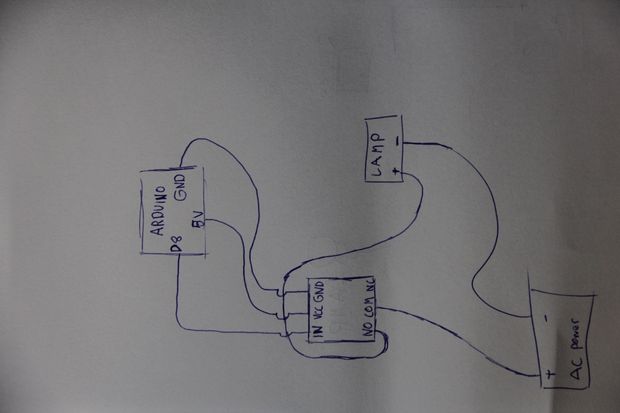 ARDUINO
GND
5V
D8
LAMP
+ -
IN VCC GND
NO COM NC
+ -
AC power